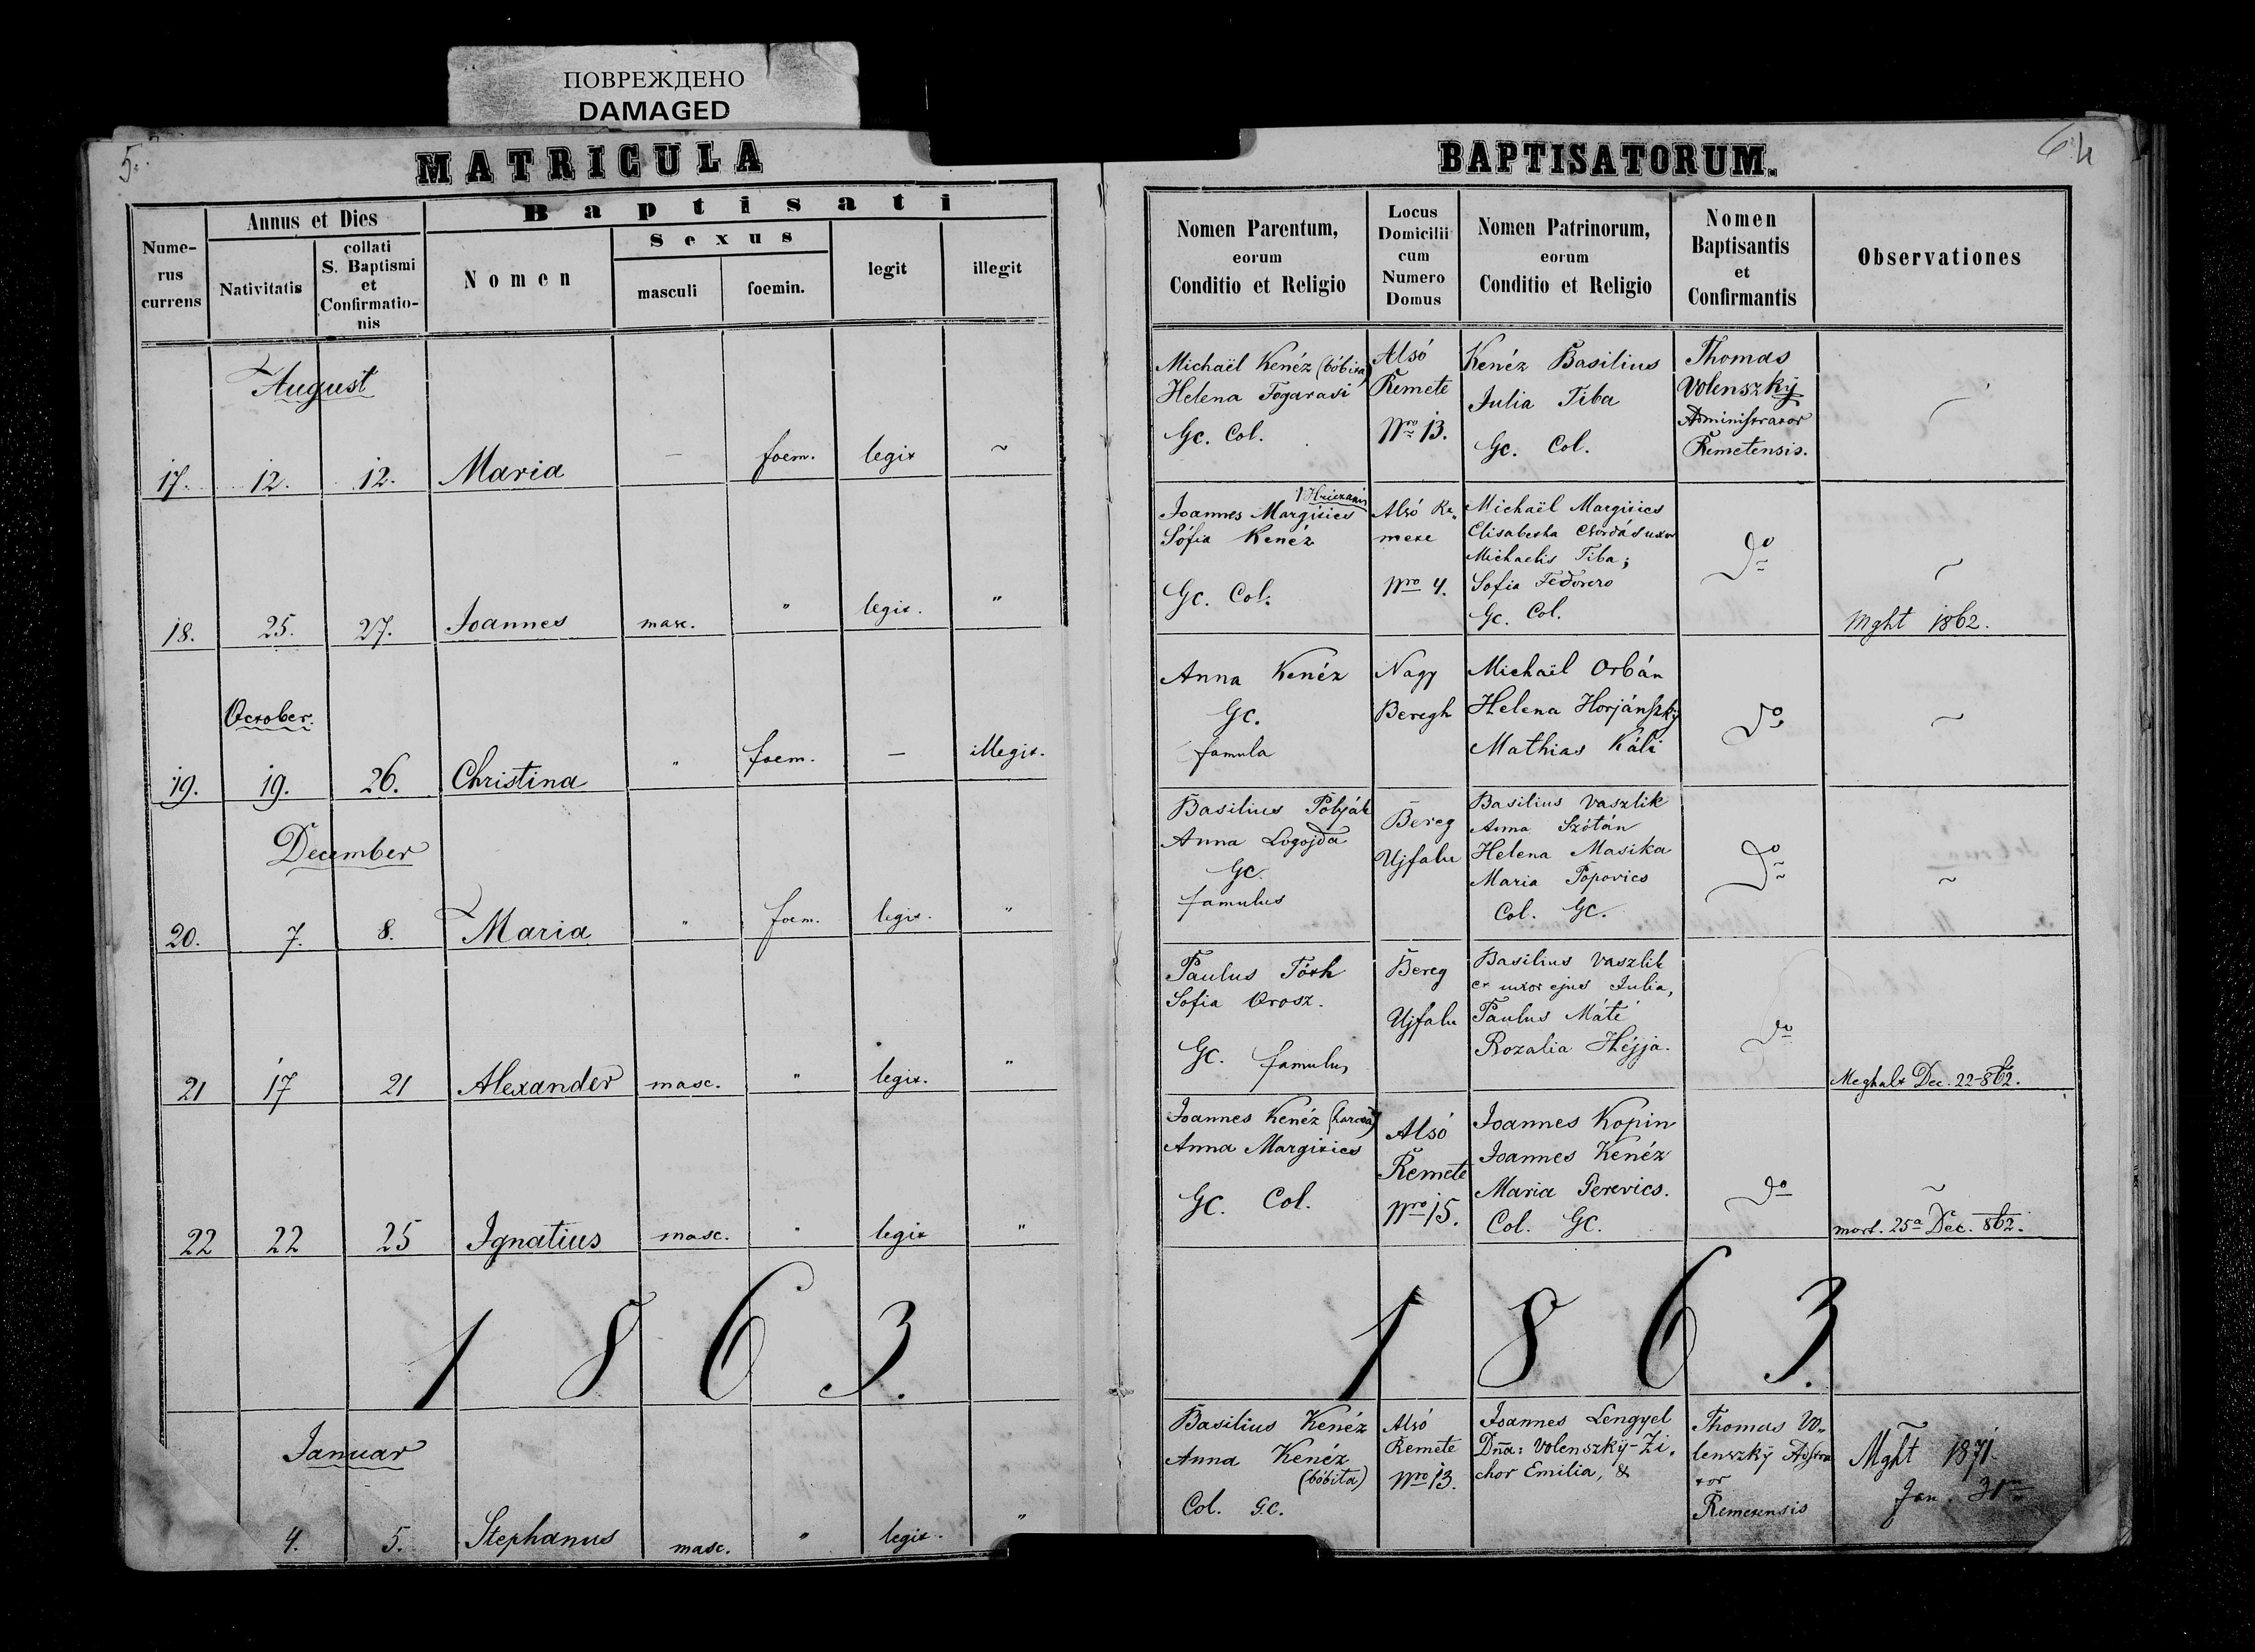 ПОВРЕЖДЕНО
DAMAGED
5.
MATRICULA
Numerus currens
Annus et Dies
Nativitatis
collati S. Baptismi et Confirmationis
Baptisati
Nomen
Sexus
masculi
foemin.
legit
illegit
August
17. 12. 12. Maria — foem. legit ~
18. 25. 27. Joannes masc. " legit. "
October.
19. 19. 26. Christina " foem. — illegit.
December
20. 7. 8. Maria " foem. legit. "
21 17 21 Alexander masc. " legit. "
22 22 25 Ignatius masc. " legit "
1863.
Januar
4. 5. Stephanus masc. " legit. "
BAPTISATORUM.
64
Nomen Parentum,
eorum
Conditio et Religio
Locus
Domicilii
cum
Numero
Domus
Nomen Patrinorum,
eorum
Conditio et Religio
Nomen
Baptisantis
et
Confirmantis
Observationes
Michaël Kenéz (bóbita)
Helena Fogarasi
Gc. Col.
Alsó
Remete
Nro 13.
Kenéz Basilius
Julia Tiba
Gc. Col.
Thomas
Volenszkÿ
Administrator
Remetensis.
Joannes Margitics
Sófia Kenéz
Gc. Col.
Alsó Re„
mete
Nro 4.
Michaël Margitics
Elisabetha Csordás uxor
Michaelis Tiba;
Sofia
Gc. Col.
do
~
Mght 1862.
Anna Kenéz
Gc.
famula
Nagy
Beregh
Michaël Orbán
Helena Horjánszkÿ
Mathias Káli
do
~
Basilius Polyák
Anna Logojda
Gc.
famulus
Bereg
Ujfalu
Basilius Vaszlik
Anna Szótán
Helena Masika
Maria Popovics
Col. Gc.
do
~
Paulus Tóth
Sofia Orosz.
Gc. famulus
Bereg
Ujfalu
Basilius Vaszlik
et uxor ejus Julia,
Paulus Máté
Rozalia Héjja.
do
Meghalt Dec. 22-862.
Joannes Kenéz
Anna Margitics
Gc. Col.
Alsó
Remete
Nro 15.
Joannes Kopin
Joannes Kenéz
Maria Perevics.
Col. Gc.
do
~
mort. 25a Dec. 862.
1863.
Basilius Kenéz
Anna Kenéz
(bóbita)
Col. Gc.
Alsó
Remete
Nro 13.
Joannes Lengyel
Dña: Volenszkÿ-Zi„
chor Emilia, &
Thomas Vo„
lenszkÿ Adstra
tor
Remetensis
Mght 1871.
Jan. 31